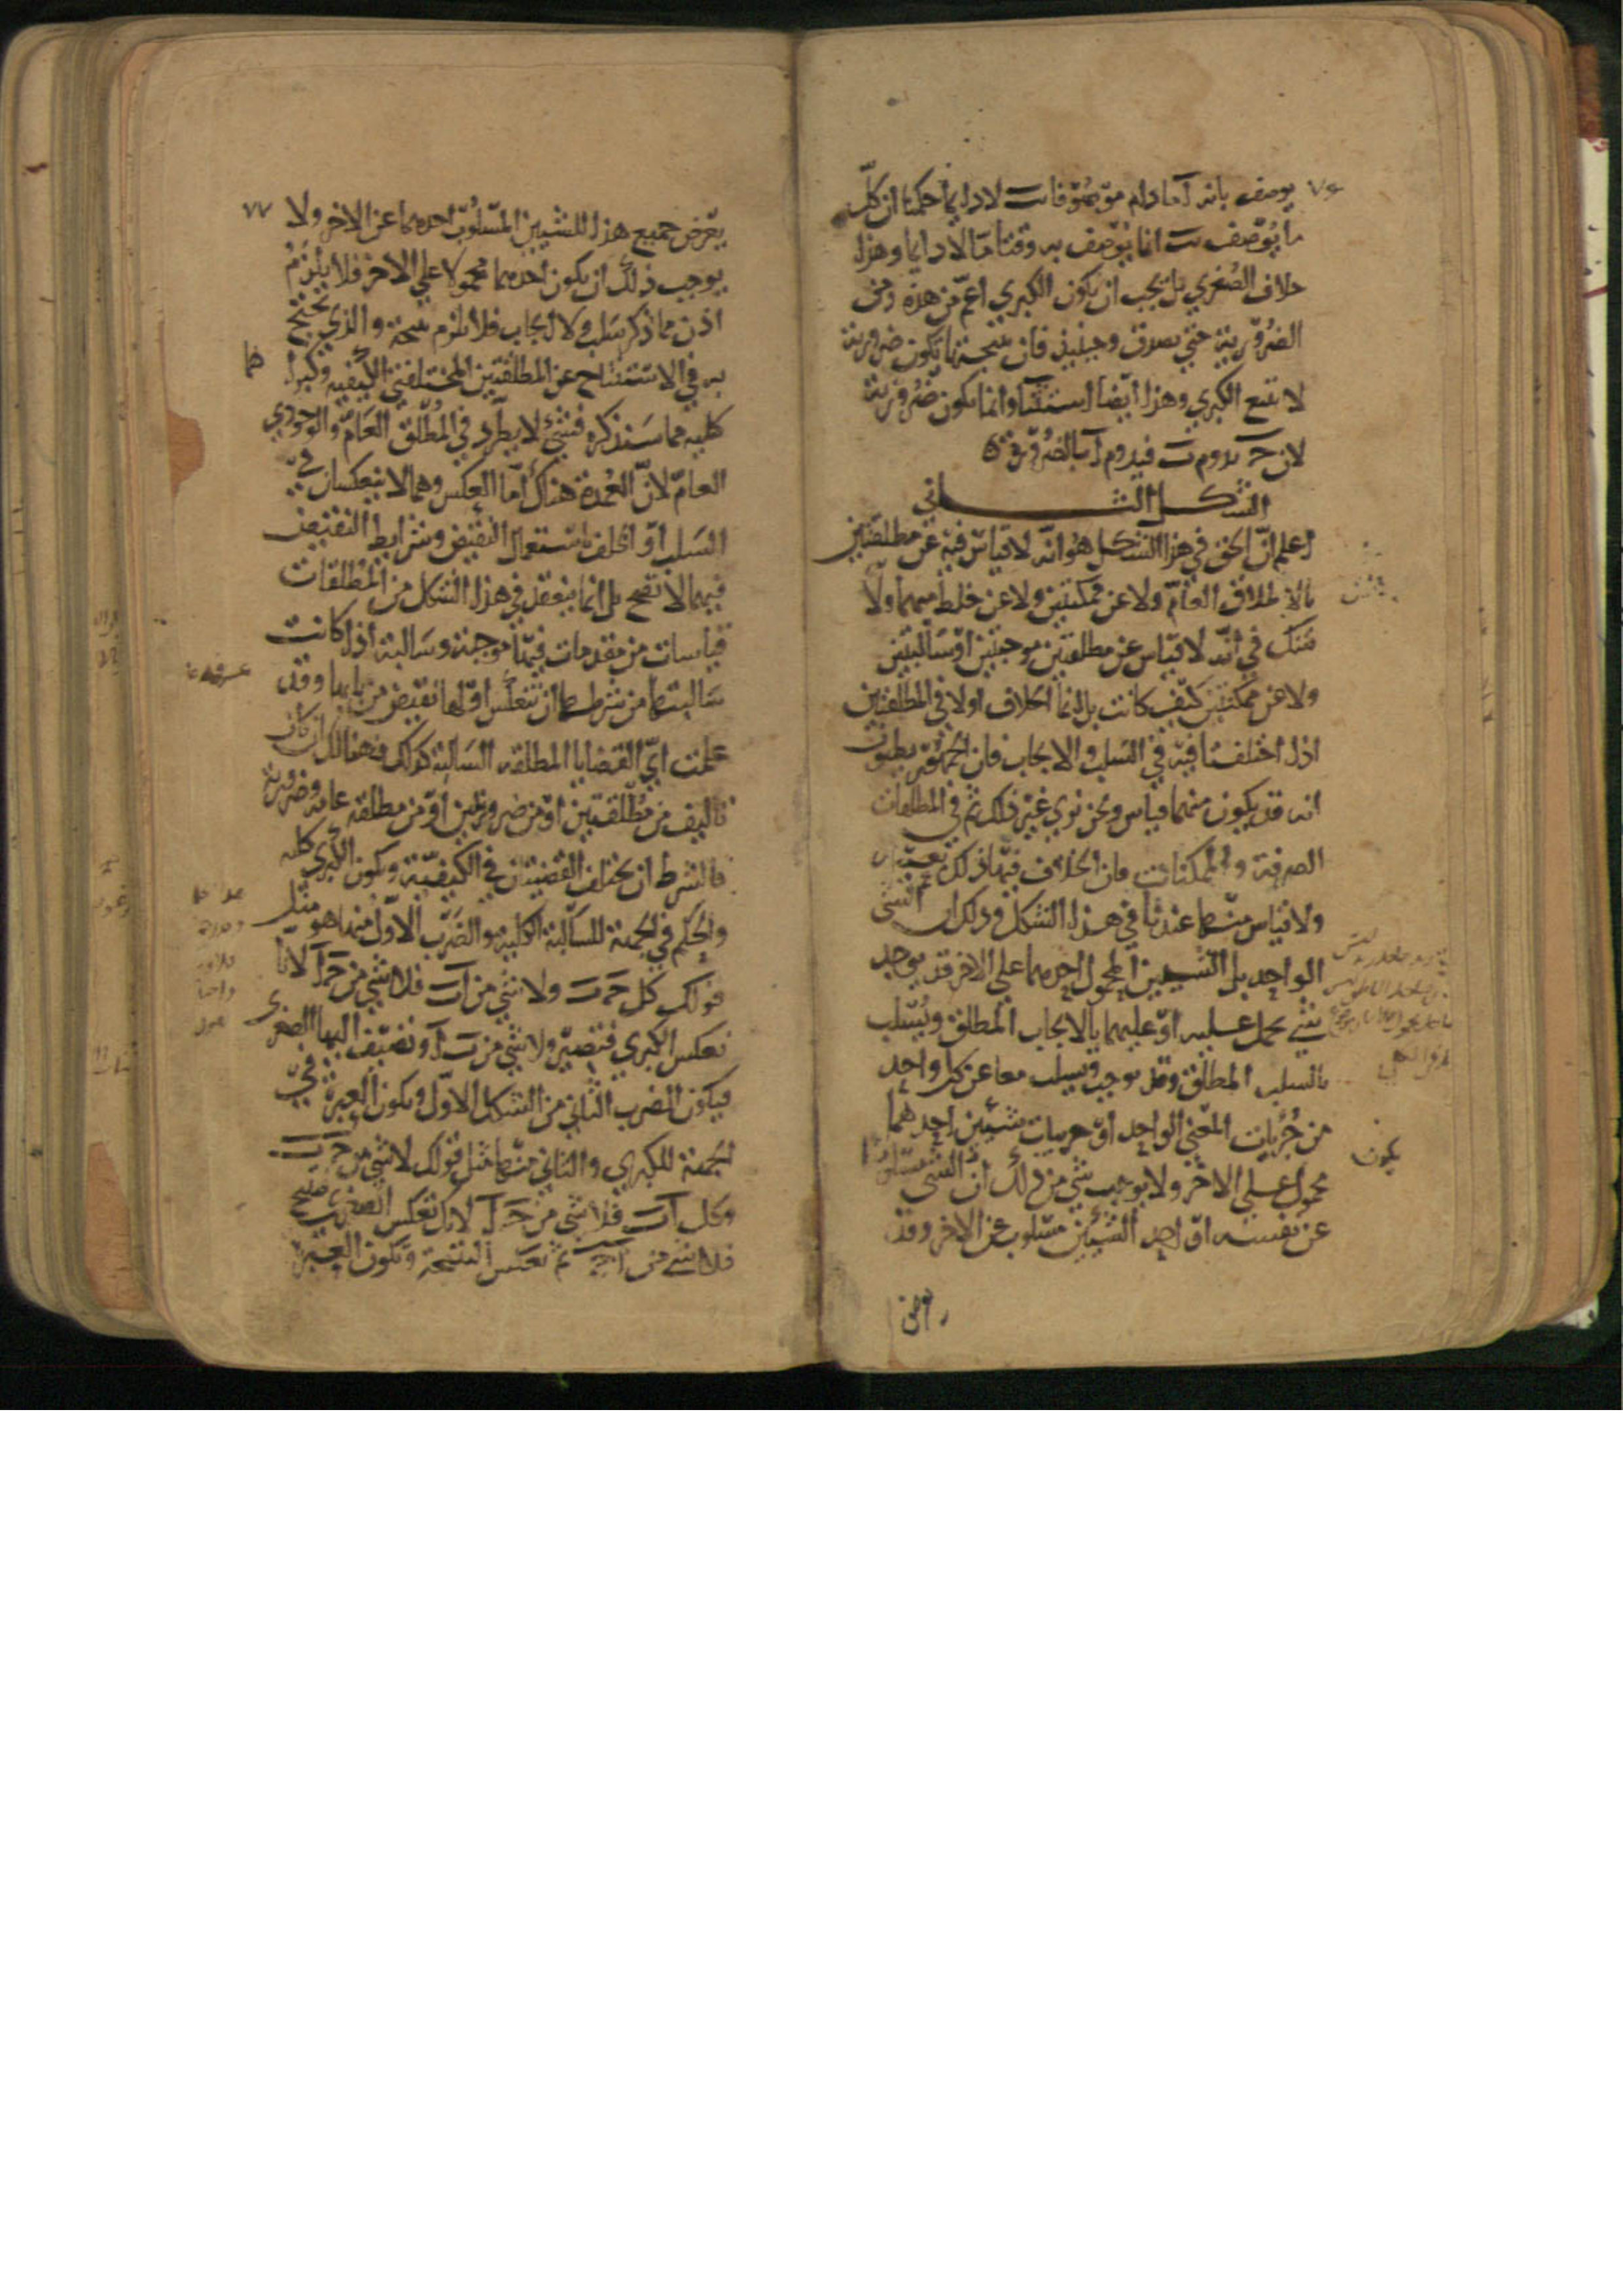 ٧٦
يوصف بانه آ ما دام موصوفا بـ ت لا دايما حكمنا ان كل
ما يوصف ب ت انما يوصف به وقتا ما لا دايما وهذا
خلاف الصغري بل يجب ان يكون الكبري اعم من هذه ومن
الضرورية حتي تصدق وحينيذ فان نتيجتها تكون ضرورية
لا تتبع الكبري وهذا ايضا استثنا وانما تكون ضرورية
لان ج يدوم ت فيدوم آ بالضرورة
الشكل الثاني
اعلم ان الحق في هذا الشكل هو انه لا قياس فيه عن مطلقتين
بالاطلاق العام ولا عن ممكنتين ولا عن خلط منهما ولا
شك في انه لا قياس عن مطلقتين موجبتين او سالبتين
ولا عن ممكنتين كيف كانت بل انما الخلاف اولا في المطلقتين
اذا اختلفتا فيه في السلب والايجاب فان الجمهور يظنون
انه قد يكون منهما قياس ونحن نري غير ذلك ثم في المطلقات
الصرفة والممكنات فان الخلاف فيها ذلك بعينه
ولا قياس منها عندنا في هذا الشكل وذلك ان الشي
الواحد بل الشيين المحمول احدهما علي الاخر قد يوجد
شي يحمل عليه او عليهما بالايجاب المطلق ويسلب
بالسلب المطلق وقد يوجب ويسلب معا عن كل واحد
من جزييات المعني الواحد او جزييات شيين احدهما
محمول علي الاخر ولا يوجب شي من ذلك ان الشي مسلوبا
عن نفسه او احد الشيين مسلوب عن الاخر وقد
يكون
٧٧
يعرض جميع هذا للشيين المسلوب احدهما عن الاخر ولا
يوجب ذلك ان يكون احدهما محمولا علي الاخر فلا يلزم
اذن مما ذكر سلب ولا ايجاب فلا تلزم نتيجة والذي يحتج
به في الاستنتاج عن المطلقتين المختلفتي الكيفية وكبراهما
كلية مما سنذكره فشي لا يطرد في المطلق العام والوجودي
العام لان العمدة هناك اما العكس وهما لا ينعكسان في
السلب او الخلف باستعمال النقيض وشرايط النقيض
فيهما لا تصح بل انما ينعقد في هذا الشكل من المطلقات
قياسات من مقدمات فيها موجبة وسالبة اذا كانت
سالبتها من شرطها ان تنعكس او لها نقيض من بابها وقد
علمت اي القضايا المطلقة السالبة كذلك فهنالك ان كان
تاليف من مطلقتين او من ضروريتين او من مطلقة عامة وضرورية
فالشرط ان تختلف القضيتان في الكيفية وتكون الكبري كلية
والحكم في الجهة للسالبة الكلية والضرب الاول منها هو مثل
قولك كل ج ت ولا شي من آ ت فلا شي من ج آ لانا
نعكس الكبري فتصير ولا شي من ت آ ونضيف اليها الصغري
فيكون الضرب الثاني من الشكل الاول وتكون العبرة في
الجهة للكبري والثاني منها مثل قولك لا شي من ج ت
وكل آ ت فلا شي من ج آ لانك تعكس الصغري فينتج
فلا شي من آ ج ثم تعكس النتيجة وتكون العبرة